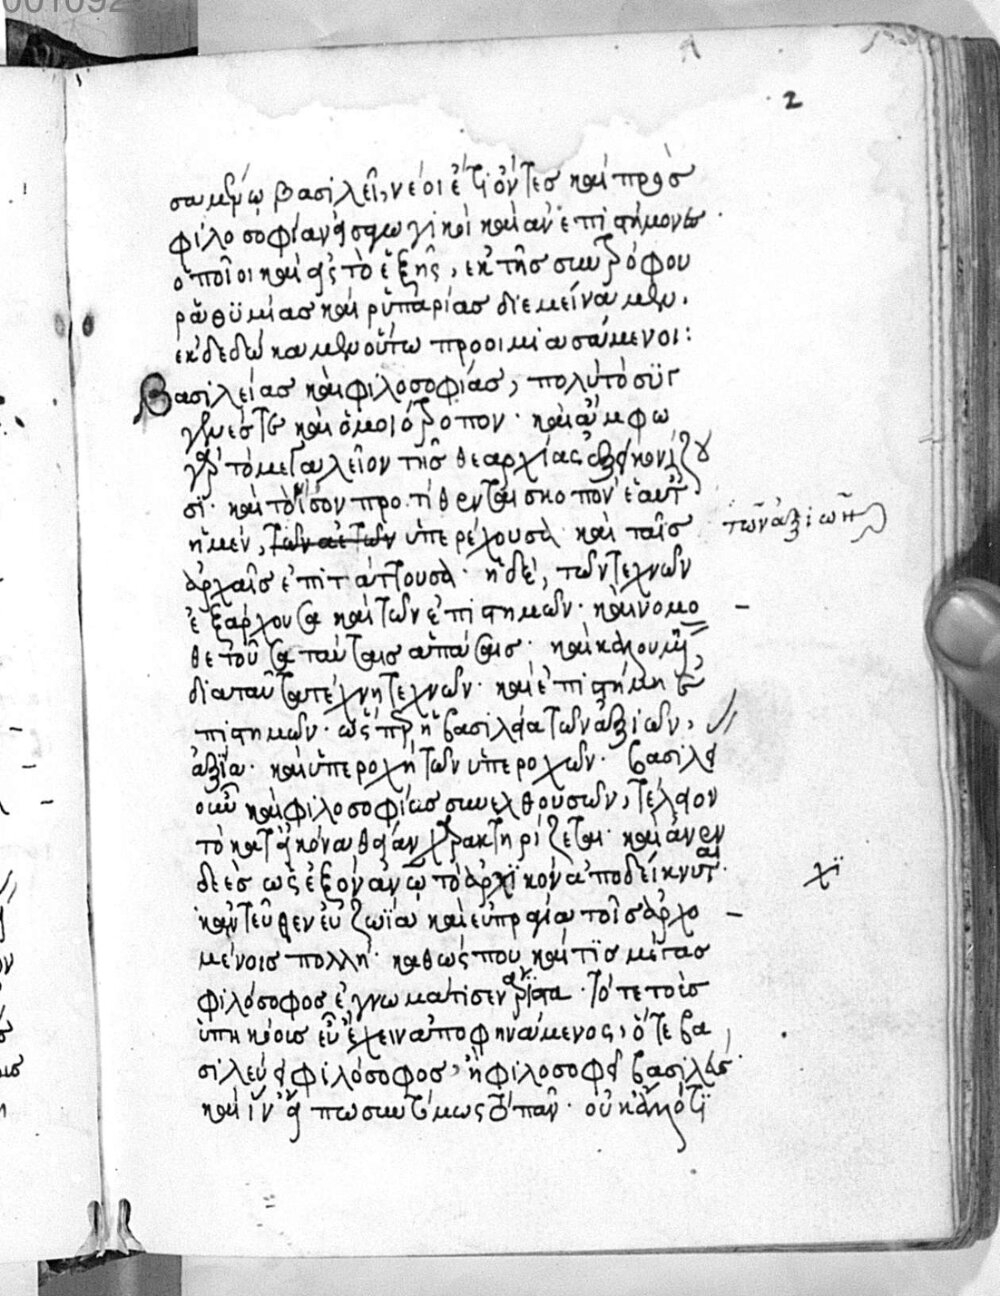 001092
2
σαμένῳ βασιλεῖ, νέοι ἔτι ὄντες καὶ πρὸς
φιλοσοφίαν εἰσαγωγικοὶ καὶ ἀνεπιστήμονες
ὁποῖοι καὶ εἰς τὸ ἑξῆς, ἐκ τῆς συντρόφου
ῥαθυμίας καὶ ῥυπαρίας διεμείναμεν.
ἐκδεδώκαμεν οὕτω προοιμιασάμενοι:
Βασιλείας καὶ φιλοσοφίας, πολὺ τὸ συγ
γενές τε καὶ ὁμοιότροπον· καὶ ἄμφω
γὰρ τὸ μεγαλεῖον τῆς θεαρχίας ἐξεικονίζου
σι· καὶ τὸ ἴσον προτίθενται σκοπὸν ἑαυτ
ἡ μέν, τῶν ἀετῶν ὑπερέχουσα· καὶ ταῖς
τῶν ἀξιωμ
ἀρχαῖς ἐπιτάττουσα· ἡ δέ, τῶν τεχνῶν
ἐξάρχουσα καὶ τῶν ἐπιστημῶν· καὶ νομο
θετοῦσα ταύταις ἁπάσαις· καὶ καλουμένη
διὰ ταῦτα τέχνη τεχνῶν· καὶ ἐπιστήμη ἐ
πιστημῶν· ὥσπερ ἡ βασιλεία τῶν ἀξιῶν,
ἀξία· καὶ ὑπεροχὴ τῶν ὑπεροχῶν· βασιλεί
οὖν καὶ φιλοσοφίας συνελθουσῶν, τέλειον
τὸ κατ' εἰκόνα θείαν χαρακτηρίζεται· καὶ ἀνεν
δεὲς ὡς ἐξὸν ἀνω τὸ ἀρχικὸν ἀποδείκνυται·
κἀντεῦθεν εὐζωΐα καὶ εὐπραγία τοῖς ἀρχο
μένοις πολλή· καθώς που καί τις μέγας
φιλόσοφος ἐγνωμάτισεν ἄριστα· τότε τοὺς
ὑπηκόους εὖ ἔχειν ἀποφηνάμενος, ὅτε βα
σιλεύει φιλόσοφος, ἢ φιλοσοφεῖ βασιλεύς·